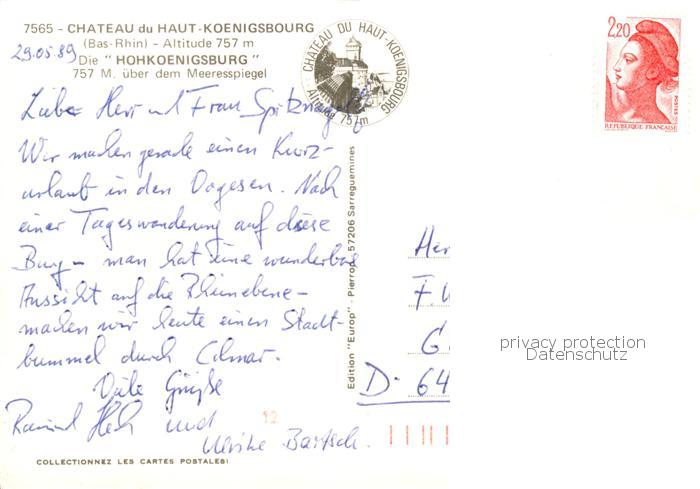 7565 - CHATEAU du HAUT-KOENIGSBOURG
(Bas-Rhin) - Altitude 757 m
29.05.89
Die "HOHKOENIGSBURG"
757 M. über dem Meeresspiegel
CHATEAU DU HAUT-KOENIGSBOURG
Altitude 757m
2,20
POSTES
REPUBLIQUE FRANÇAISE
Liebe Herr und Frau
Wir machen gerade einen Kurz-
urlaub in den Vogesen. Nach
einer Tageswanderung auf diese
Burg - man hat eine wunderbare
Aussicht auf die Rheinebene -
machen wir heute einen Stadt-
bummel durch Colmar.
Viele Grüße
und
Ulrike Bartsch.
12
Edition "Europ" - Pierron - 57206 Sarreguemines
Her
F.
G
D-64
privacy protection
Datenschutz
COLLECTIONNEZ LES CARTES POSTALES!